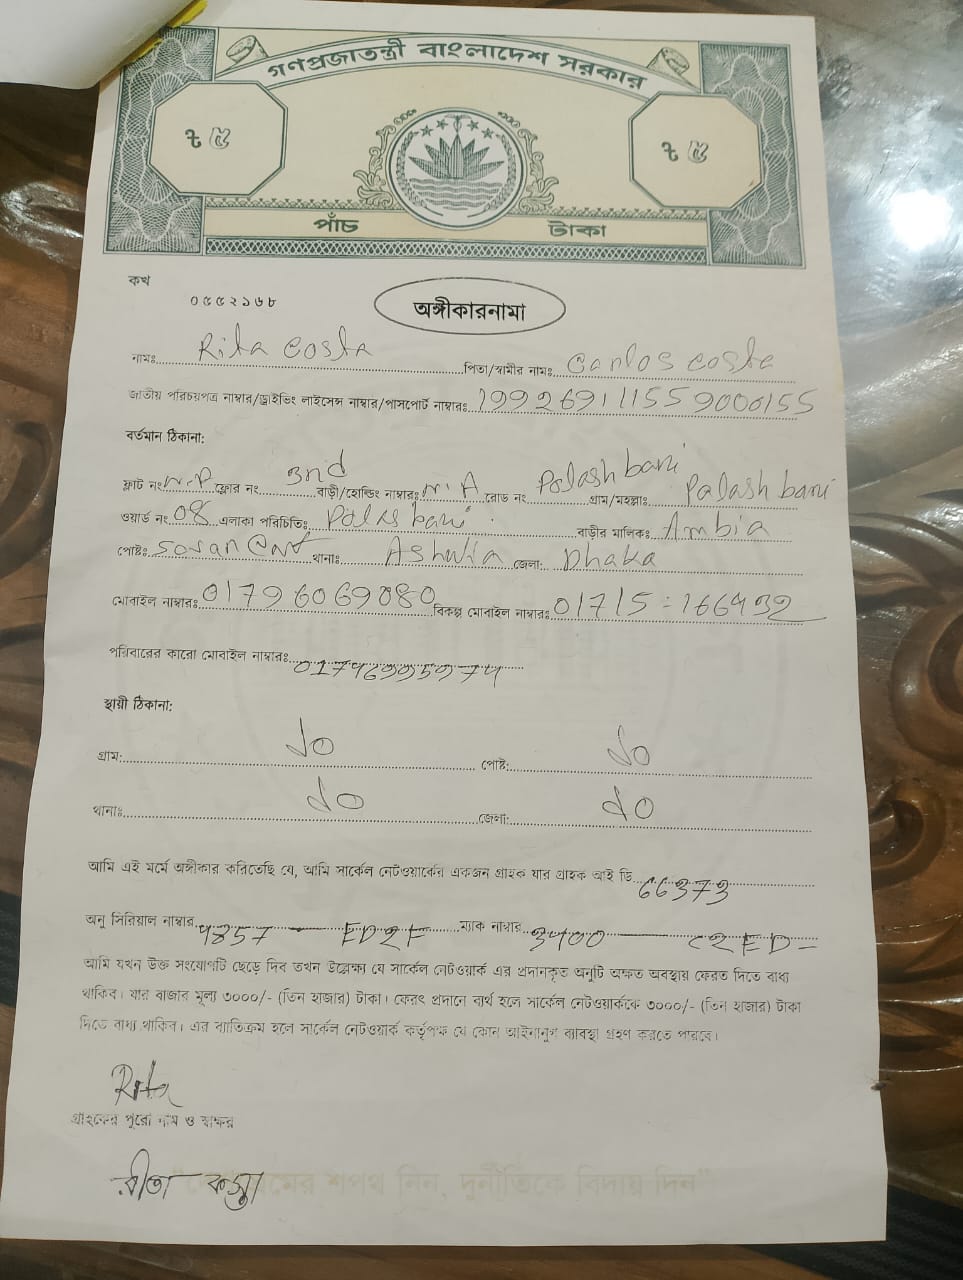 গণপ্রজাতন্ত্রী বাংলাদেশ সরকার
৳ ৫ ৳ ৫
পাঁচ টাকা
কখ
০৫৫২১৬৮
অঙ্গীকারনামা
নামঃ Rita Costa পিতা/স্বামীর নামঃ Carlos Coste
জাতীয় পরিচয়পত্র নাম্বার/ড্রাইভিং লাইসেন্স নাম্বার/পাসপোর্ট নাম্বারঃ 19926911559000155
বর্তমান ঠিকানা:
ফ্লাট নং N-P ফ্লোর নং 3nd বাড়ী/হোল্ডিং নাম্বারঃ N.A রোড নং Polash bari গ্রাম/মহল্লাঃ Palash bari
ওয়ার্ড নং 08 এলাকা পরিচিতিঃ Polas bari বাড়ীর মালিকঃ Ambia
পোষ্টঃ থানাঃ Ashulia জেলা: Dhaka
মোবাইল নাম্বারঃ 01796069080 বিকল্প মোবাইল নাম্বারঃ 01715-166432
পরিবারের কারো মোবাইল নাম্বারঃ
স্থায়ী ঠিকানা:
গ্রাম: পোষ্ট:
থানাঃ জেলা:
আমি এই মর্মে অঙ্গীকার করিতেছি যে, আমি সার্কেল নেটওয়ার্কের একজন গ্রাহক যার গ্রাহক আই ডি 66373
অনু সিরিয়াল নাম্বার 4857 — ED2F ম্যাক নাম্বার 3400 — C2ED-
আমি যখন উক্ত সংযোগটি ছেড়ে দিব তখন উল্লেক্ষ্য যে সার্কেল নেটওয়ার্ক এর প্রদানকৃত অনুটি অক্ষত অবস্থায় ফেরত দিতে বাধ্য
থাকিব। যার বাজার মূল্য ৩০০০/- (তিন হাজার) টাকা। ফেরৎ প্রদানে ব্যর্থ হলে সার্কেল নেটওয়ার্ককে ৩০০০/- (তিন হাজার) টাকা
দিতে বাধ্য থাকিব। এর ব্যতিক্রম হলে সার্কেল নেটওয়ার্ক কর্তৃপক্ষ যে কোন আইনানুগ ব্যবস্থা গ্রহণ করতে পারবে।
Rita
গ্রাহকের পুরো নাম ও স্বাক্ষর
রীতা কস্তা